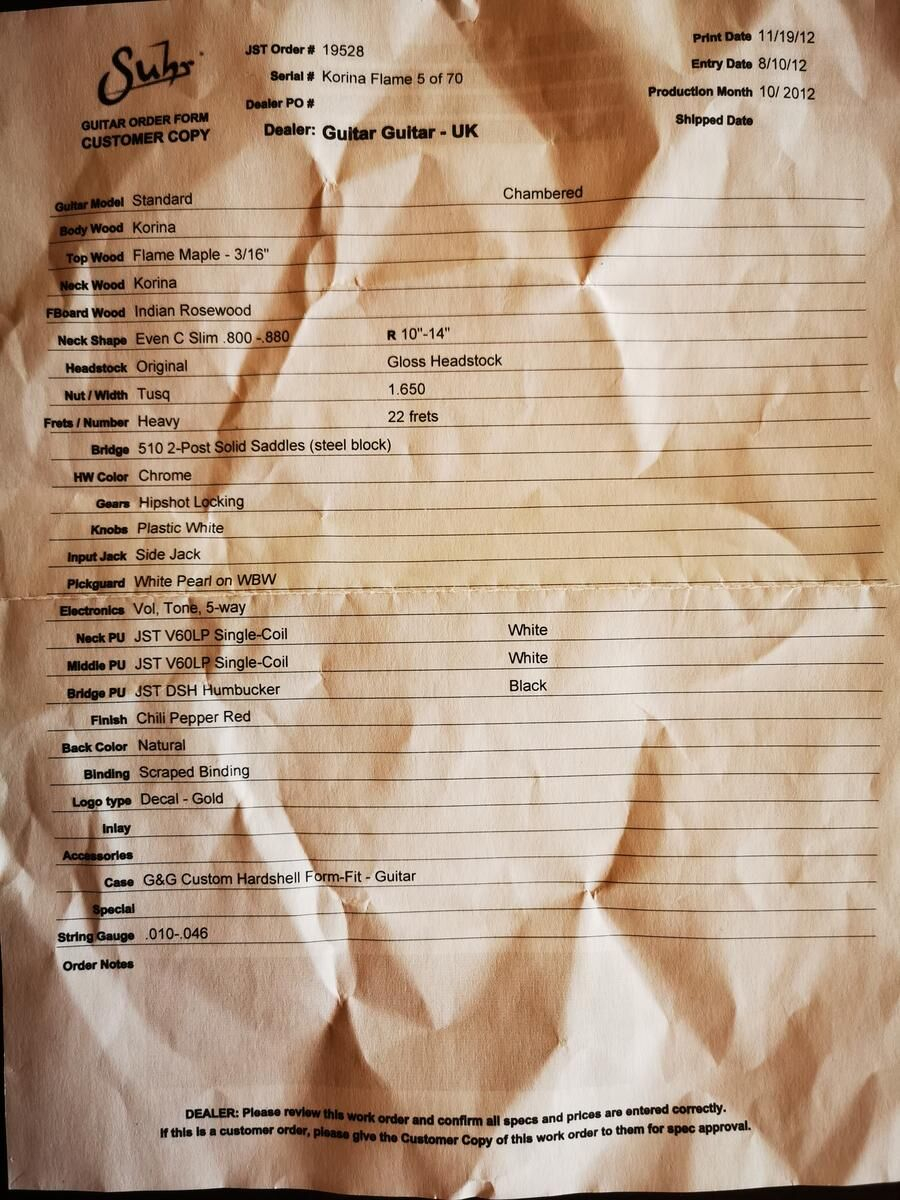 Suhr
GUITAR ORDER FORM
CUSTOMER COPY
JST Order # 19528
Serial # Korina Flame 5 of 70
Dealer PO #
Dealer: Guitar Guitar - UK
Print Date 11/19/12
Entry Date 8/10/12
Production Month 10/ 2012
Shipped Date
Guitar Model Standard Chambered
Body Wood Korina
Top Wood Flame Maple - 3/16"
Neck Wood Korina
FBoard Wood Indian Rosewood
Neck Shape Even C Slim .800 -.880 R 10"-14"
Headstock Original Gloss Headstock
Nut / Width Tusq 1.650
Frets / Number Heavy 22 frets
Bridge 510 2-Post Solid Saddles (steel block)
HW Color Chrome
Gears Hipshot Locking
Knobs Plastic White
Input Jack Side Jack
Pickguard White Pearl on WBW
Electronics Vol, Tone, 5-way
Neck PU JST V60LP Single-Coil White
Middle PU JST V60LP Single-Coil White
Bridge PU JST DSH Humbucker Black
Finish Chili Pepper Red
Back Color Natural
Binding Scraped Binding
Logo type Decal - Gold
Inlay
Accessories
Case G&G Custom Hardshell Form-Fit - Guitar
Special
String Gauge .010-.046
Order Notes
DEALER: Please review this work order and confirm all specs and prices are entered correctly.
If this is a customer order, please give the Customer Copy of this work order to them for spec approval.